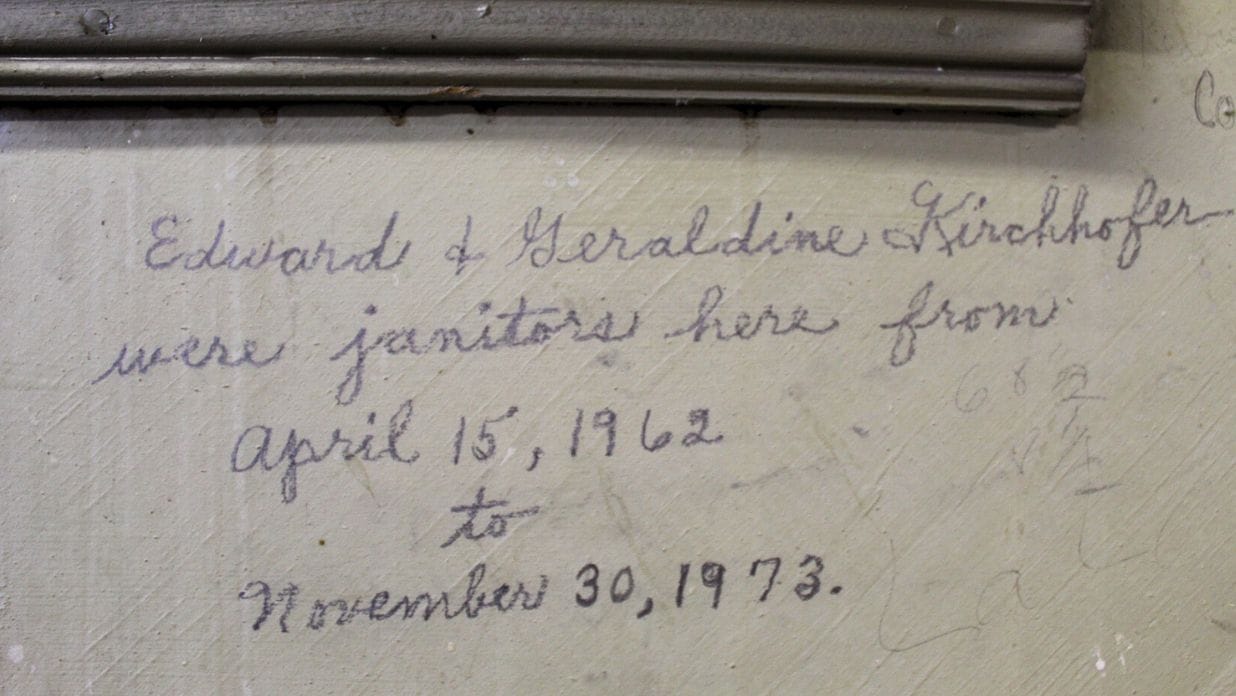 Edward & Geraldine Kirchhofer
were janitors here from
April 15, 1962
to
November 30, 1973.